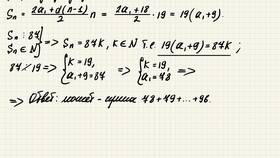 Sₙ = (2a₁ + d(n-1))/2 · n = (2a₁ + 18)/2 · 19 = 19(a₁+9).
Sₙ ⋮ 87
Sₙ ∈ N } => Sₙ = 87K, K ∈ N т.е. 19(a₁+9) = 87K ;
87 ⋮̸ 19 => { K = 19, a₁+9 = 87 => { K = 19, a₁ = 78 =>
=> Ответ: может - сумма 78+79+...+96.